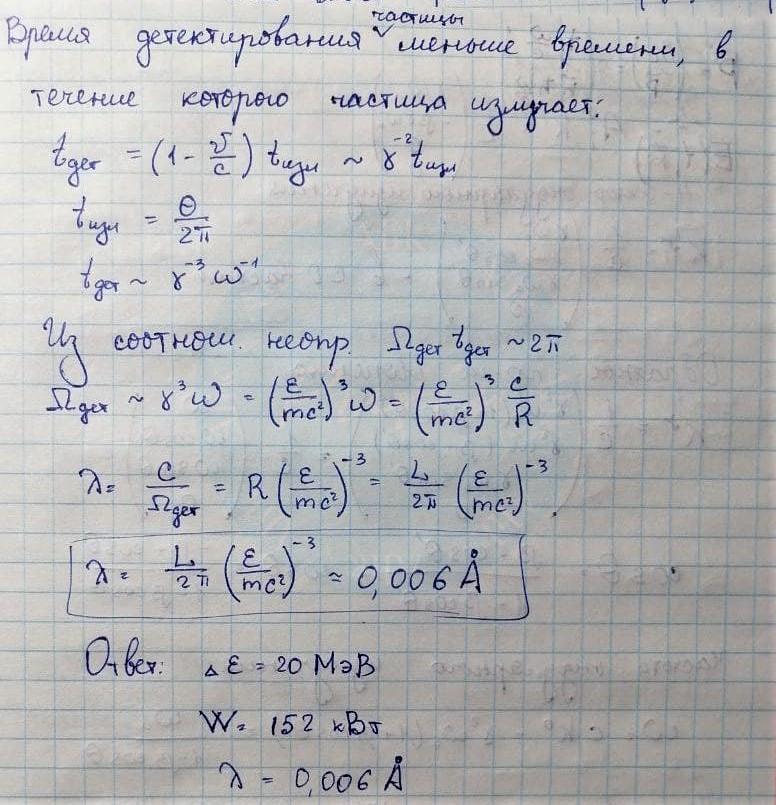 Время детектирования частицы меньше времени, в
течение которого частица излучает:
t_дет = (1 - v/c) t_изл ~ γ^-2 t_изл
t_изл = θ/2π
t_дет ~ γ^-3 ω^-1
Из соотнош. неопр. Ω_дет t_дет ~ 2π
Ω_дет ~ γ^3 ω = (ε/mc²)^3 ω = (ε/mc²)^3 c/R
λ = c/Ω_дет = R (ε/mc²)^-3 = L/2π (ε/mc²)^-3
λ = L/2π (ε/mc²)^-3 ≈ 0,006 Å
Ответ: Δε = 20 МэВ
W = 152 кВт
λ = 0,006 Å